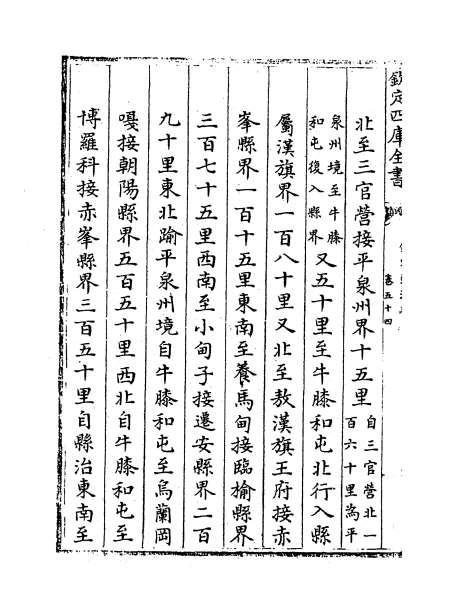 欽定四庫全書
卷五十四
北至三官營接平泉州界十五里自三官營北一百六十里為平
泉州境至牛膝和屯後入縣界又五十里至牛膝和屯北行入縣
屬漢旗界一百八十里又北至敖漢旗王府接赤
峯縣界一百十五里東南至養馬甸接臨榆縣界
三百七十五里西南至小甸子接遷安縣界二百
九十里東北踰平泉州境自牛膝和屯至烏蘭岡
嘎接朝陽縣界五百五十里西北自牛膝和屯至
博羅科接赤峯縣界三百五十里自縣治東南至